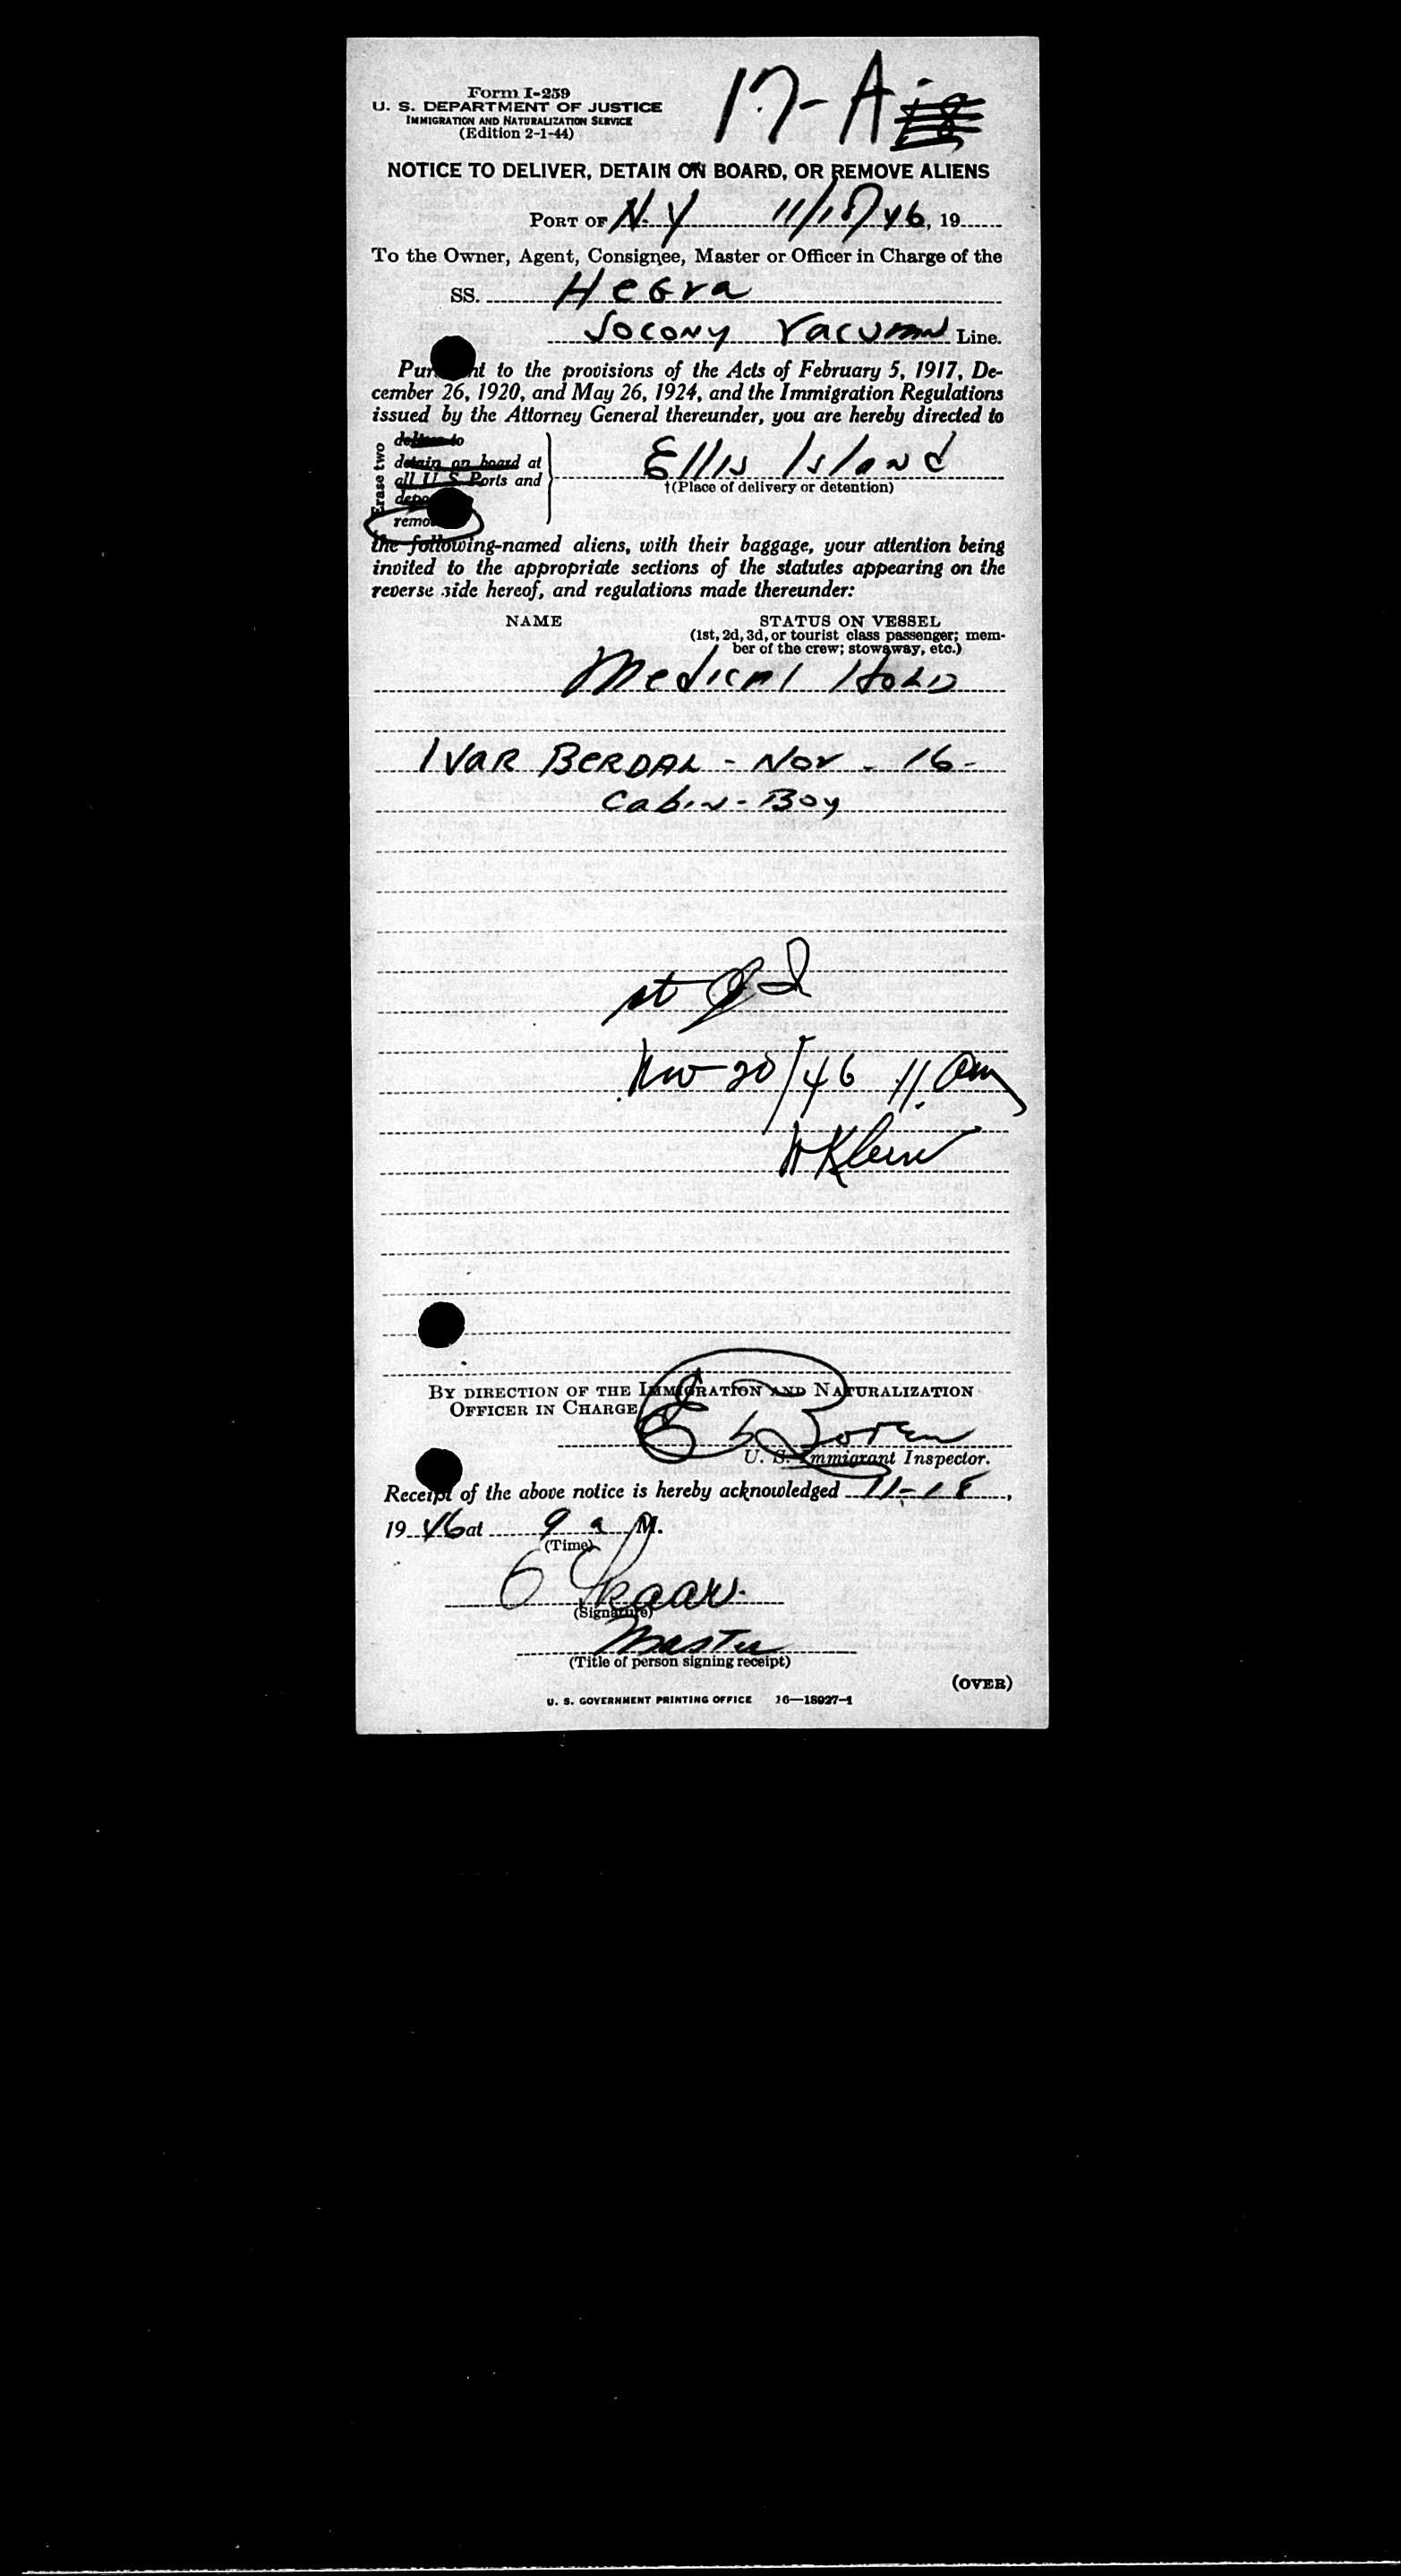 Form I-259
U. S. DEPARTMENT OF JUSTICE
IMMIGRATION AND NATURALIZATION SERVICE
(Edition 2-1-44)
17-A
NOTICE TO DELIVER, DETAIN ON BOARD, OR REMOVE ALIENS
PORT OF N.Y 11/18/46, 19
To the Owner, Agent, Consignee, Master or Officer in Charge of the
SS. HEGra
Socony Vacuum Line.
Pur nt to the provisions of the Acts of February 5, 1917, De-
cember 26, 1920, and May 26, 1924, and the Immigration Regulations
issued by the Attorney General thereunder, you are hereby directed to
Erase two
deliver to
detain on board at
all U. S. Ports and
depo
remo
Ellis Island
†(Place of delivery or detention)
the following-named aliens, with their baggage, your attention being
invited to the appropriate sections of the statutes appearing on the
reverse side hereof, and regulations made thereunder:
NAME STATUS ON VESSEL
(1st, 2d, 3d, or tourist class passenger; mem-
ber of the crew; stowaway, etc.)
Medical Hold
IVAR BERDAL - Nov - 16 -
Cabin - Boy
Nov 20/46 11. am
Klein
BY DIRECTION OF THE IMMIGRATION AND NATURALIZATION
OFFICER IN CHARGE
U. S. Immigrant Inspector.
Receipt of the above notice is hereby acknowledged 11-18,
19 46 at 9 a M.
(Time)
Skaar
(Signature)
Master
(Title of person signing receipt)
(OVER)
U. S. GOVERNMENT PRINTING OFFICE 16—18027-1